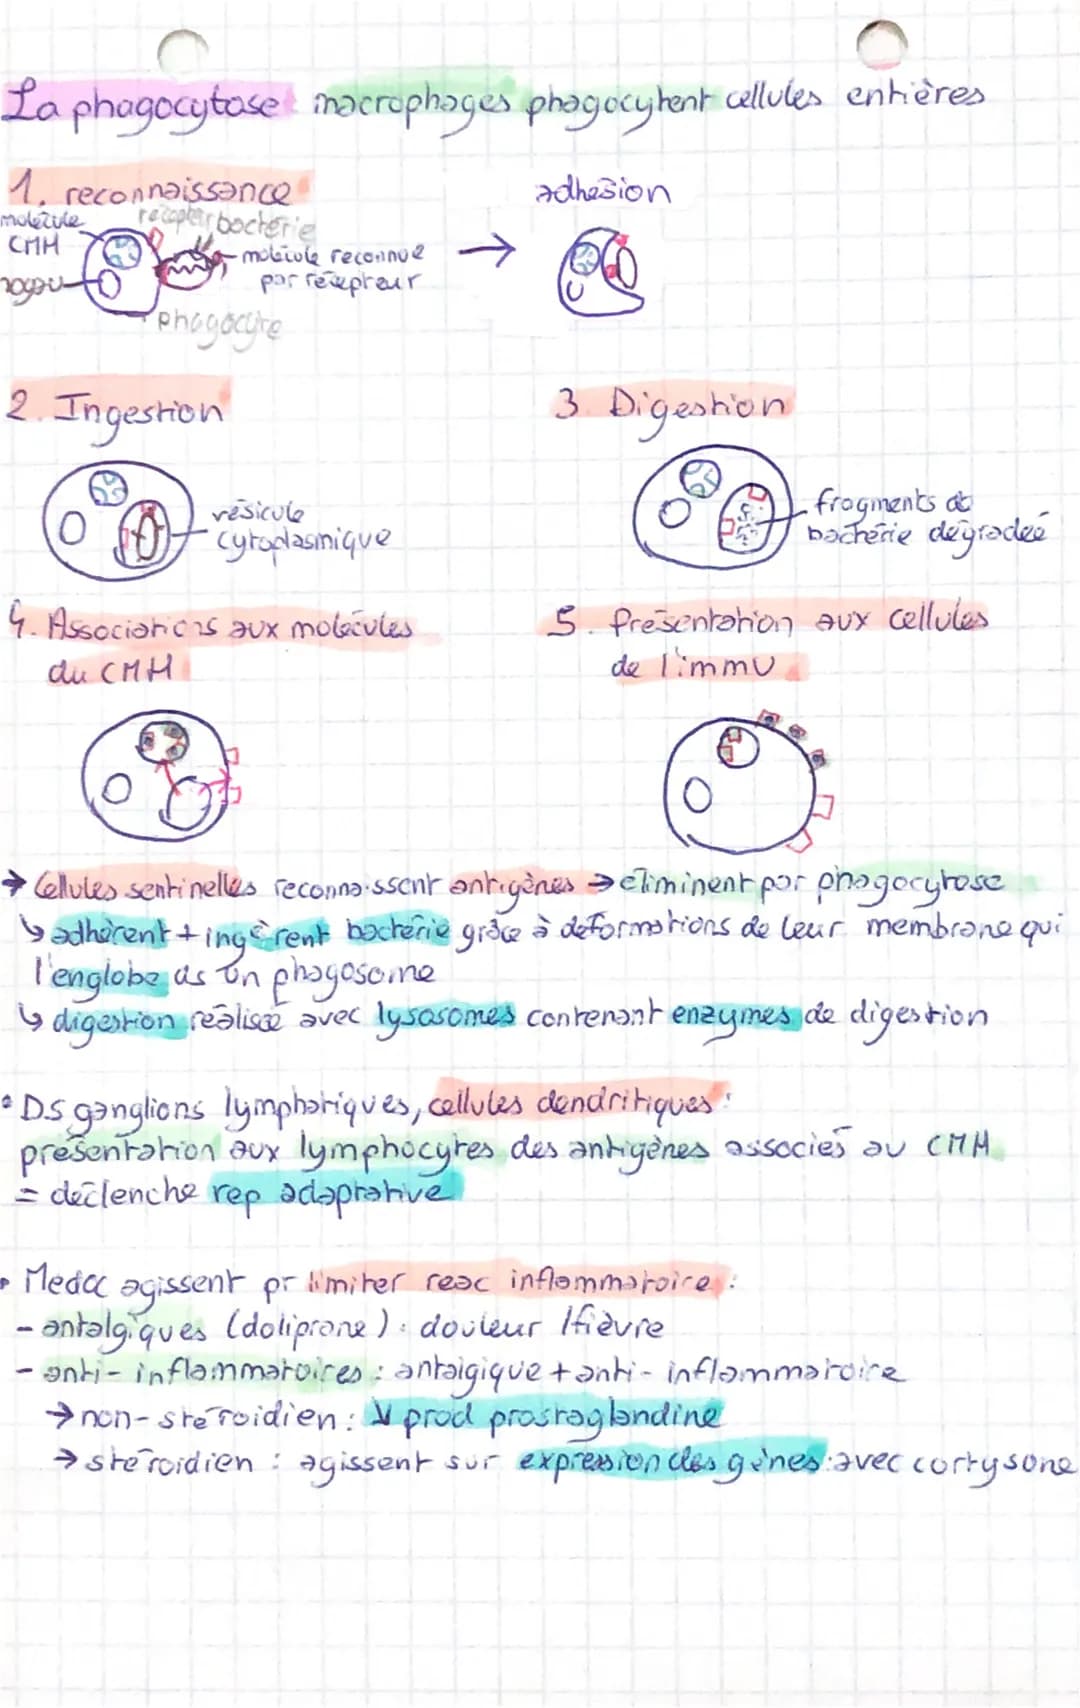 La phagocytose macrophages phagocytent cellules entières
1. reconnaissance
adhésion
molécule
CMH
récepteur
bactérie
noyau
molécule reconnue
par récepteur
phagocyte
2. Ingestion
vésicule
cytoplasmique
3. Digestion
fragments de
bactérie dégradée
4. Associations aux molécules
du CMH
5. Présentation aux cellules
de l'immu
→ Cellules sentinelles reconnaissent antigènes → éliminent par phagocytose
↳ adhèrent + ingèrent bactérie grâce à déformations de leur membrane qui
l'englobe ds un phagosome
↳ digestion réalisée avec lysosomes contenant enzymes de digestion
• Ds ganglions lymphatiques, cellules dendritiques :
présentation aux lymphocytes des antigènes associés au CMH
= déclenche rep adaptative
• Medoc agissent pr limiter reac inflammatoire :
- antalgiques (doliprane) : douleur / fièvre
- anti-inflammatoires : antalgique + anti-inflammatoire
→ non-stéroidien : ↘ prod prostaglandine
→ stéroidien : agissent sur expression des gènes : avec cortysone